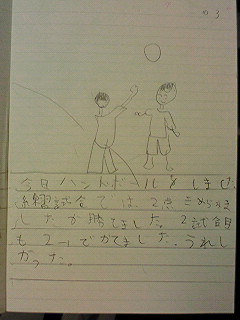 03
今日ハンドボールをしました。
練習試合では、2点きめられま
したが勝てました。2試合目
も2-1でかてました。うれし
かった。